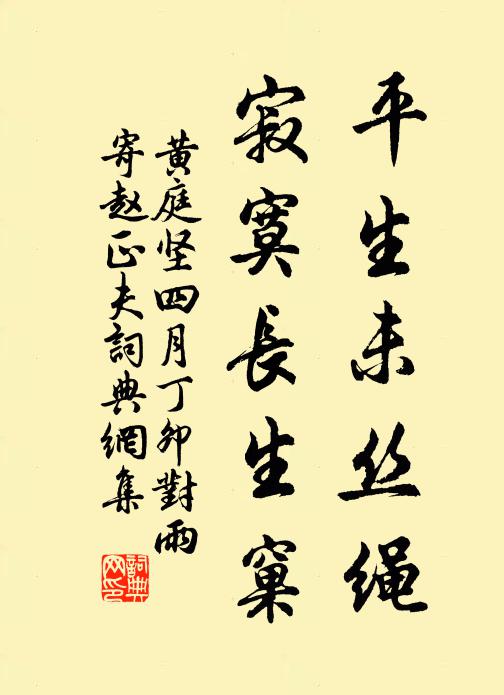 平生未丝绳
寂寞長生窠
黄庭坚四月丁卯對雨
寄赵正夫詞典網集
詞典网印